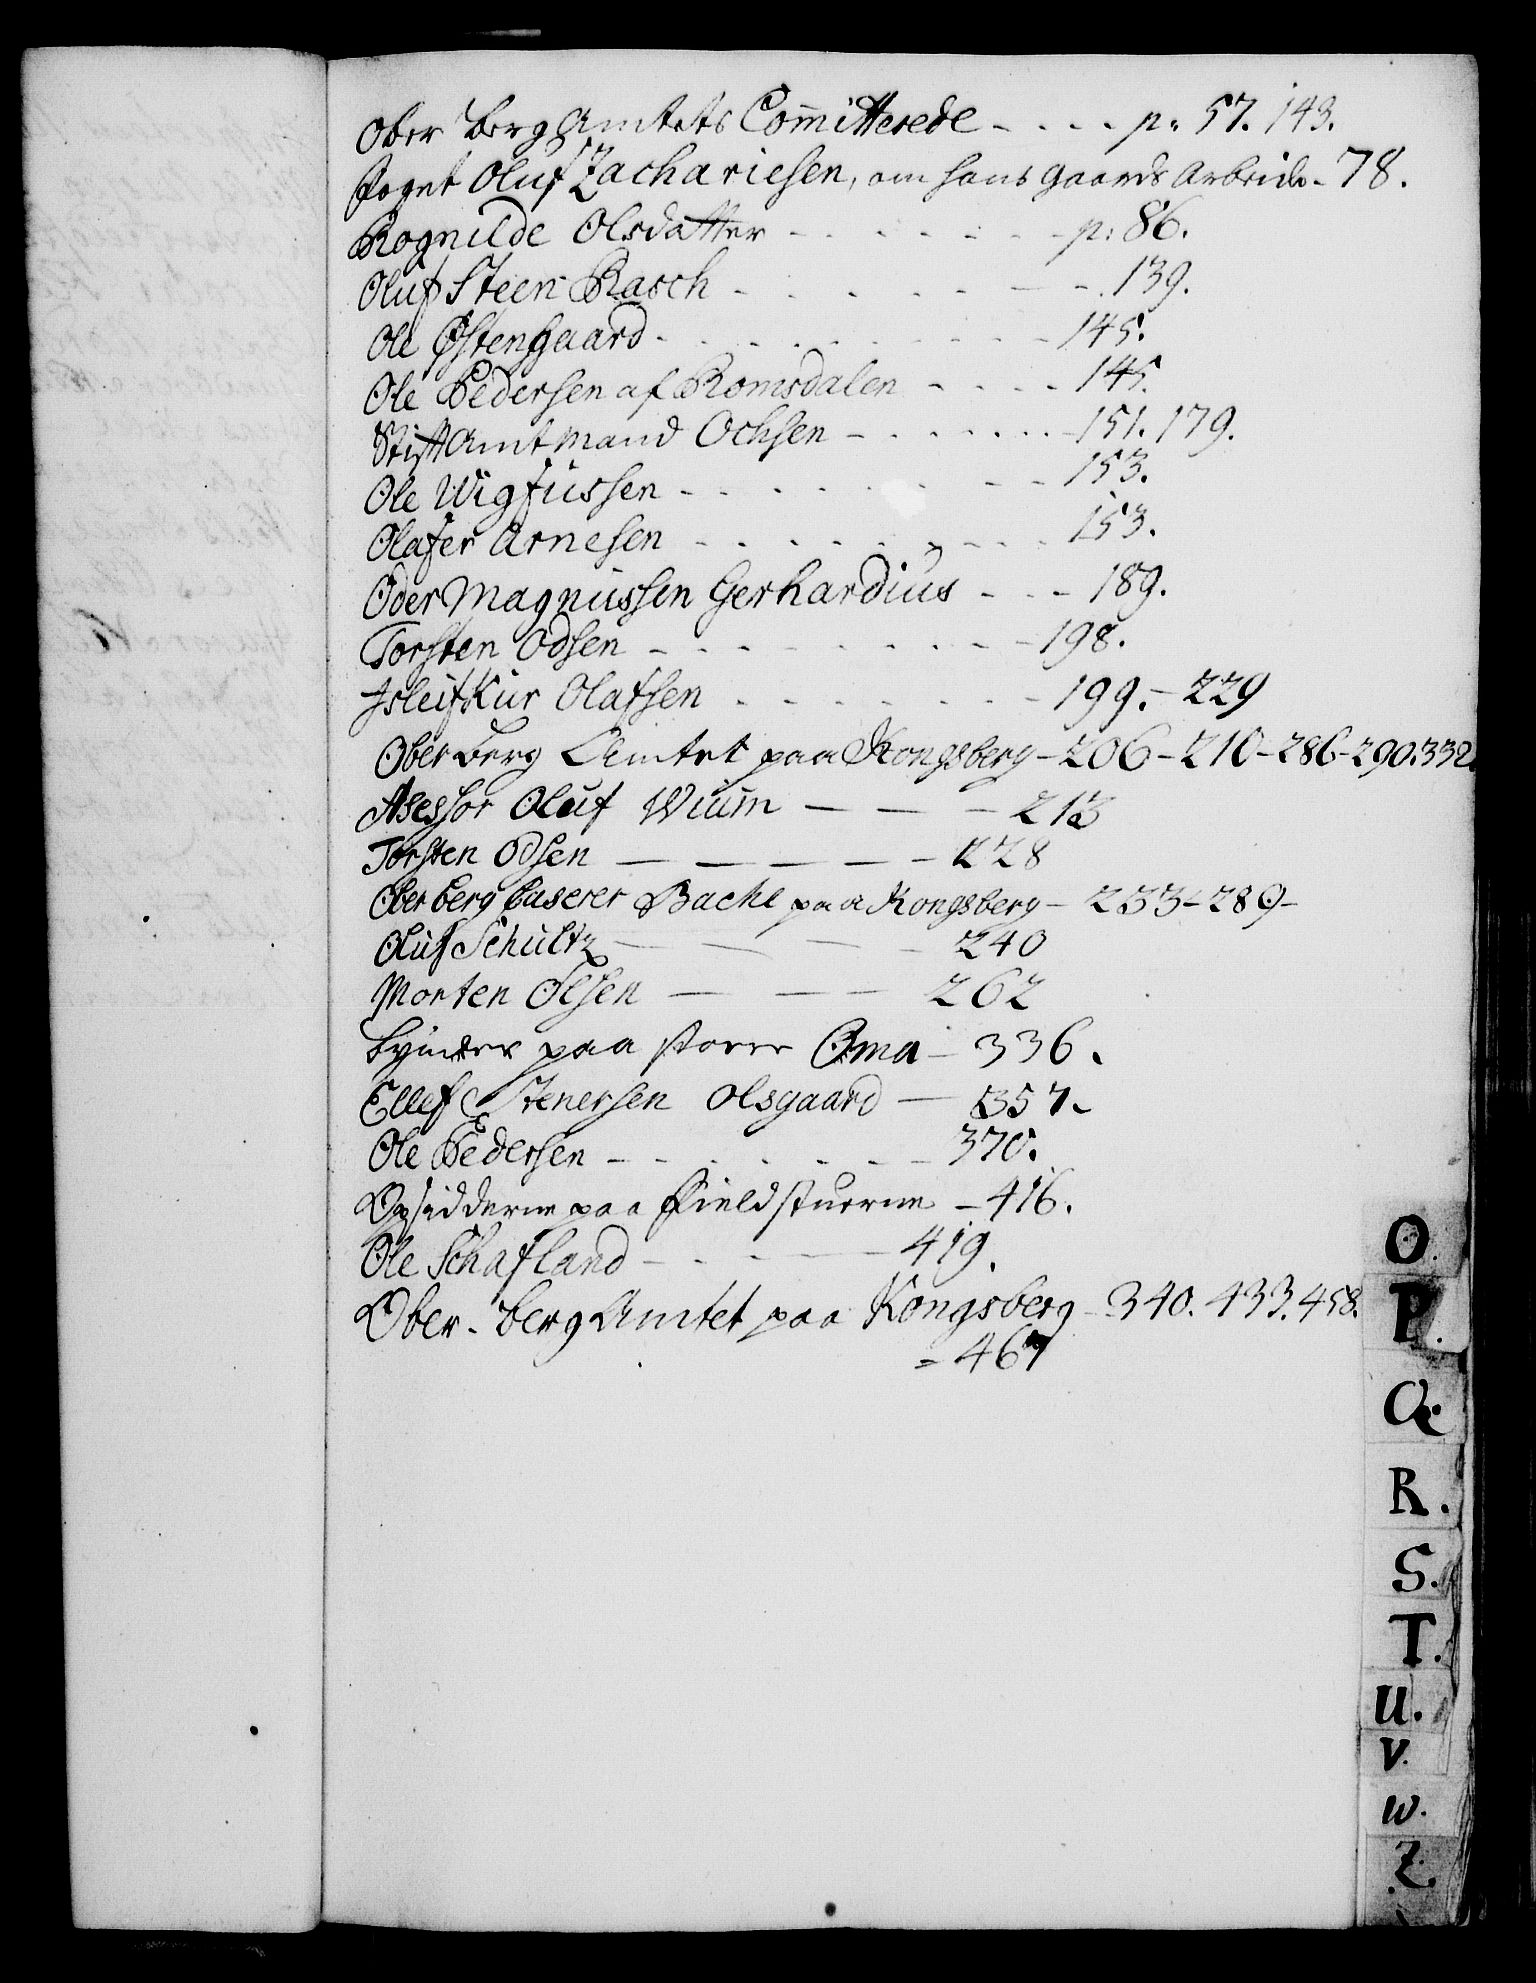 Ober Berg Amtets Committerede - - - - p. 57. 143.
Foget Oluf Zachariesen, om hans Gaards Arbeide - 78.
Rognilde Olsdatter - - - - - - p: 86.
Oluf Steen Rasch - - - - - - - 139.
Ole Østengaard - - - - - - - - 145.
Ole Pedersen af Romsdalen - - - - 145.
Stift Amtmand Ochsen - - - - - - 151. 179.
Ole Wigfussen - - - - - - - 153.
Olafer Arnesen - - - - - - - 153.
Oder Magnussen Gerhardius - - - 189.
Torsten Odsen - - - - - - - - 198.
Isleifkur Olafsen - - - - - - 199. - 229
Ober Berg Amtet paa Kongsberg - 206 - 210 - 286 - 290. 332.
Asessor Oluf Wium - - - 213
Torsten Odsen - - - - - 228
Ober berg Caserer Bache paa Kongsberg - 233 - 289 -
Oluf Schultz - - - - 240
Morten Olsen - - - 262
Bynder paa store Oma - 336.
Ellef Stenersen Olsgaard - 357.
Ole Pedersen - - - - - - 370.
Opsidderne paa Fieldstuerne - 416.
Ole Schafland - - - - 419.
Ober - Berg Amtet paa Kongsberg - 340. 433. 458.
= 467
O.
P.
Q.
R.
S.
T.
U.
V.
W.
Z.